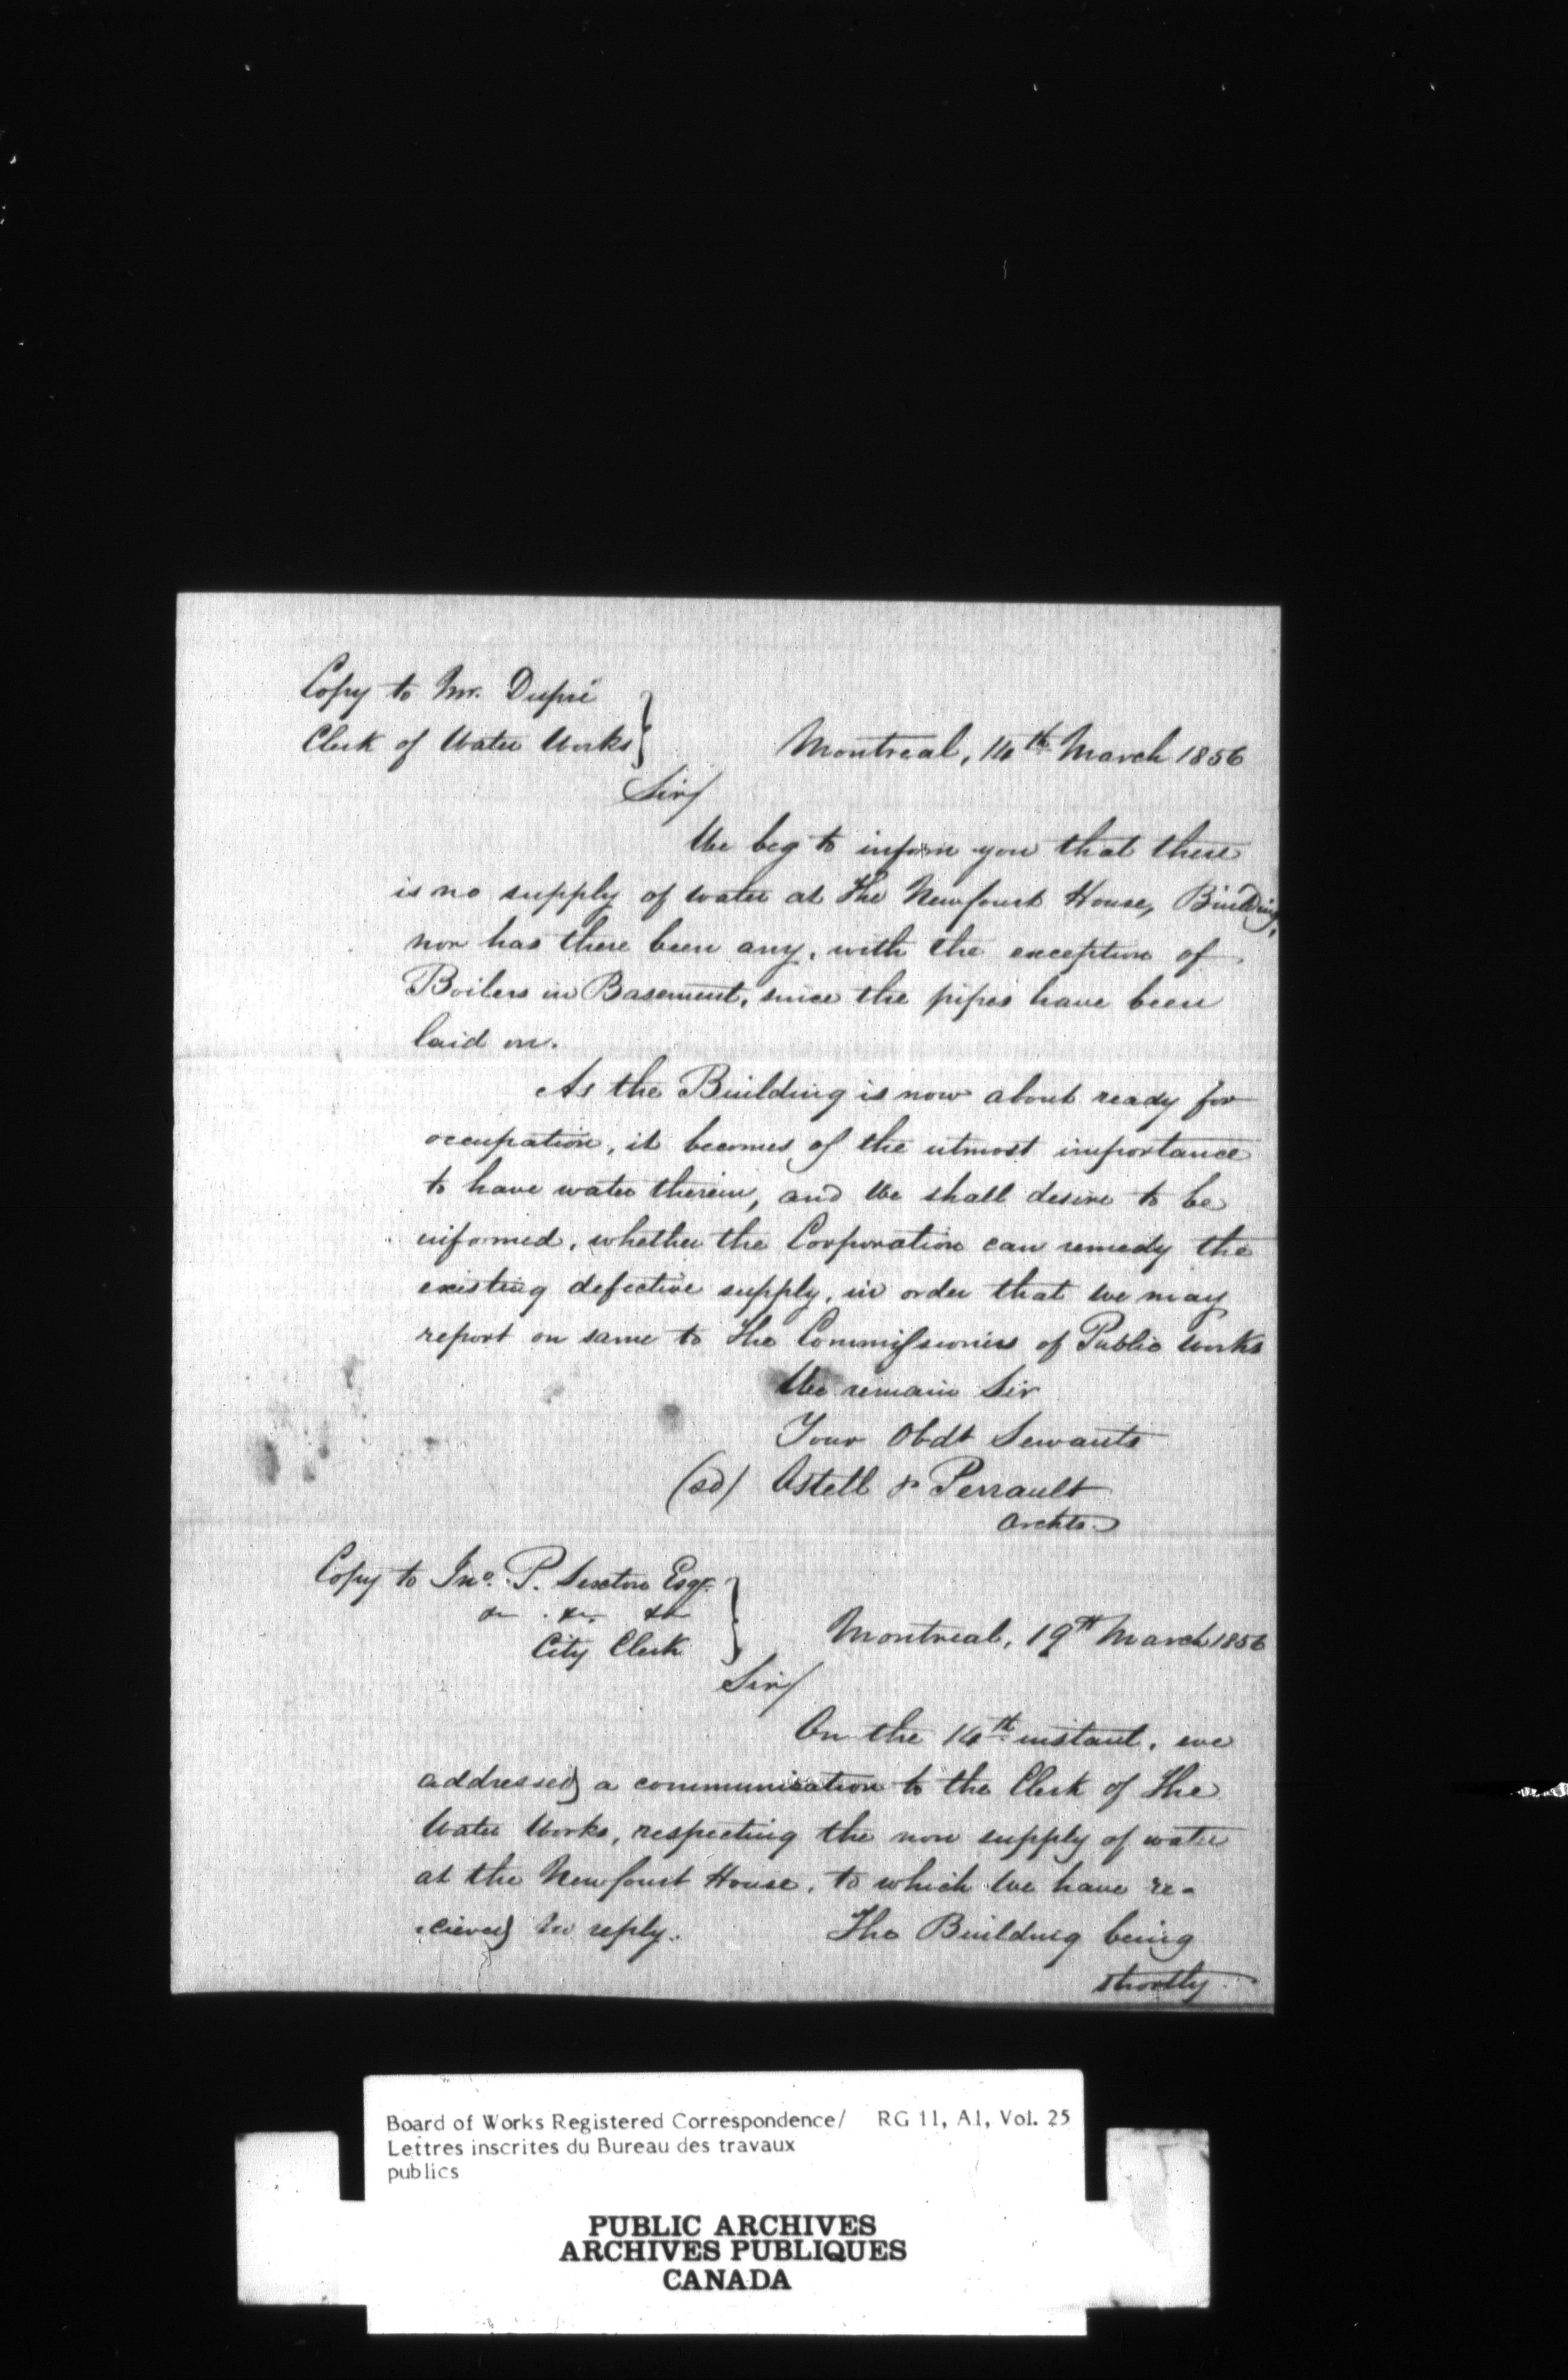 Copy to Mr. Dupré
Clerk of Water Works
Montreal, 14th March 1856
Sir/
We beg to inform you that there
is no supply of water at the New Court House, Building,
nor has there been any, with the exception of
Boilers in Basement, since the pipes have been
laid on.
As the Building is now about ready for
occupation, it becomes of the utmost importance
to have water therein, and We shall desire to be
informed, whether the Corporation can remedy the
existing defective supply, in order that we may
report on same to The Commissioners of Public Works
We remain Sir
Your Obdt Servants
(sd) Ostell & Perrault
Archts.
Copy to Jno. P. Sexton Esqr.
&c. &c. &c
City Clerk
Montreal, 19th March 1856
Sir/
On the 14th instant, we
addressed a communication to the Clerk of the
Water Works, respecting the non supply of water
at the New Court House, to which We have re-
cieved no reply. The Building being
shortly
Board of Works Registered Correspondence/ RG 11, A1, Vol. 25
Lettres inscrites du Bureau des travaux
publics
PUBLIC ARCHIVES
ARCHIVES PUBLIQUES
CANADA